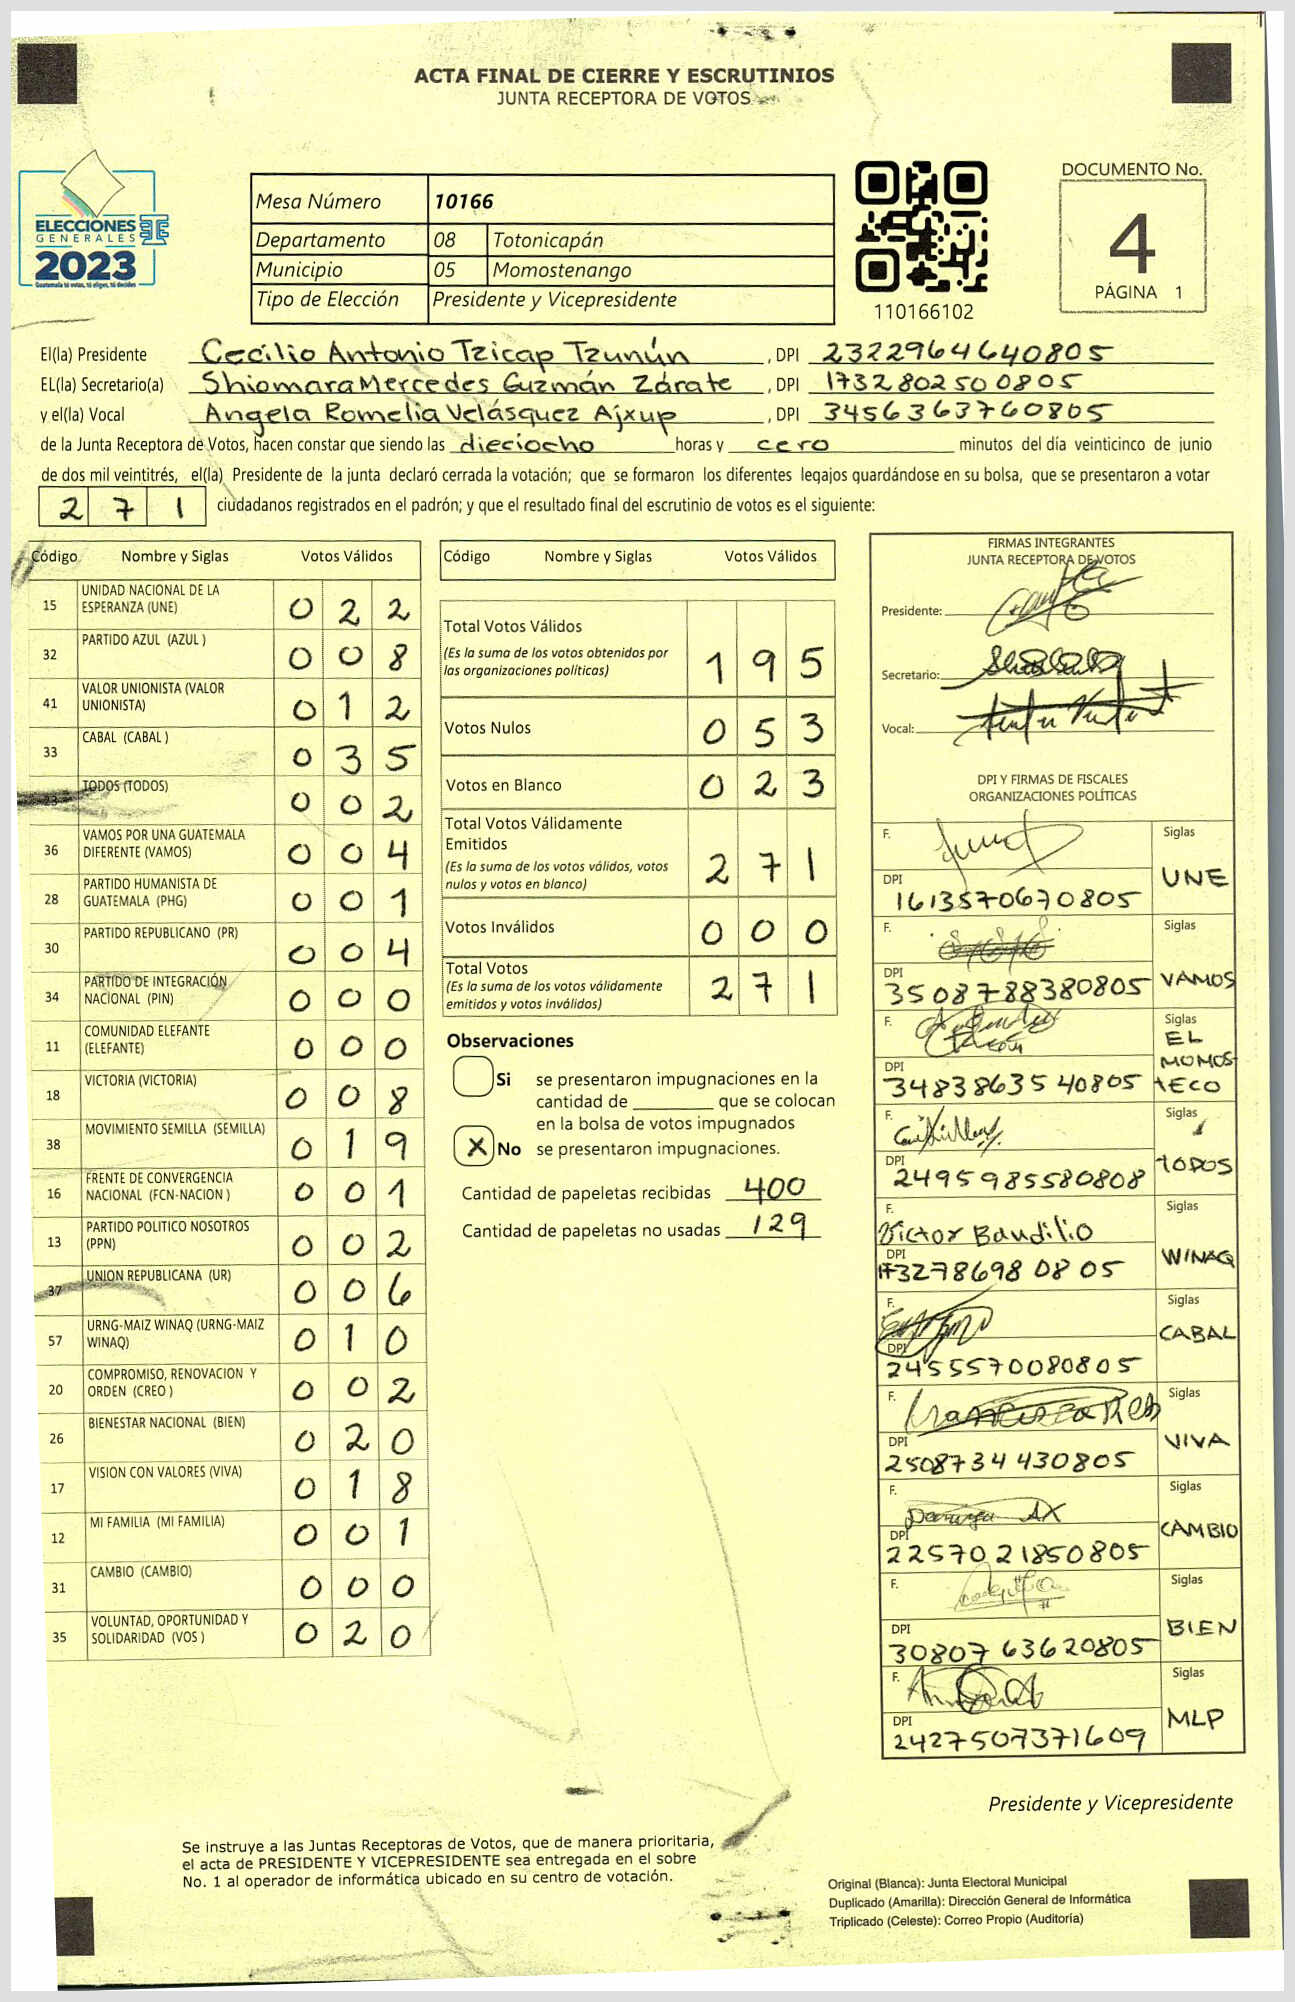 ACTA FINAL DE CIERRE Y ESCRUTINIOS
JUNTA RECEPTORA DE VOTOS
ELECCIONES
GENERALES
2023
Guatemala tú votas, tú eliges, tú decides
Mesa Número 10166
Departamento 08 Totonicapán
Municipio 05 Momostenango
Tipo de Elección Presidente y Vicepresidente
110166102
DOCUMENTO No.
4
PÁGINA 1
El(la) Presidente Cecilio Antonio Tzicap Tzunún, DPI 2322964640805
EL(la) Secretario(a) Shiomara Mercedes Guzmán Zárate, DPI 1732802500805
y el(la) Vocal Angela Romelia Velásquez Ajxup, DPI 3456363760805
de la Junta Receptora de Votos, hacen constar que siendo las dieciocho horas y cero minutos del día veinticinco de junio
de dos mil veintitrés, el(la) Presidente de la junta declaró cerrada la votación; que se formaron los diferentes legajos quardándose en su bolsa, que se presentaron a votar
271 ciudadanos registrados en el padrón; y que el resultado final del escrutinio de votos es el siguiente:
Código Nombre y Siglas Votos Válidos
15 UNIDAD NACIONAL DE LA ESPERANZA (UNE) 022
32 PARTIDO AZUL (AZUL ) 008
41 VALOR UNIONISTA (VALOR UNIONISTA) 012
33 CABAL (CABAL ) 035
23 TODOS (TODOS) 002
36 VAMOS POR UNA GUATEMALA DIFERENTE (VAMOS) 004
28 PARTIDO HUMANISTA DE GUATEMALA (PHG) 001
30 PARTIDO REPUBLICANO (PR) 004
34 PARTIDO DE INTEGRACIÓN NACIONAL (PIN) 000
11 COMUNIDAD ELEFANTE (ELEFANTE) 000
18 VICTORIA (VICTORIA) 008
38 MOVIMIENTO SEMILLA (SEMILLA) 019
16 FRENTE DE CONVERGENCIA NACIONAL (FCN-NACION ) 001
13 PARTIDO POLITICO NOSOTROS (PPN) 002
37 UNION REPUBLICANA (UR) 006
57 URNG-MAIZ WINAQ (URNG-MAIZ WINAQ) 010
20 COMPROMISO, RENOVACION Y ORDEN (CREO ) 002
26 BIENESTAR NACIONAL (BIEN) 020
17 VISION CON VALORES (VIVA) 018
12 MI FAMILIA (MI FAMILIA) 001
31 CAMBIO (CAMBIO) 000
35 VOLUNTAD, OPORTUNIDAD Y SOLIDARIDAD (VOS ) 020
Código Nombre y Siglas Votos Válidos
Total Votos Válidos
(Es la suma de los votos obtenidos por las organizaciones políticas) 195
Votos Nulos 053
Votos en Blanco 023
Total Votos Válidamente Emitidos
(Es la suma de los votos válidos, votos nulos y votos en blanco) 271
Votos Inválidos 000
Total Votos
(Es la suma de los votos válidamente emitidos y votos inválidos) 271
Observaciones
Si se presentaron impugnaciones en la
cantidad de ________ que se colocan
en la bolsa de votos impugnados
X No se presentaron impugnaciones.
Cantidad de papeletas recibidas 400
Cantidad de papeletas no usadas 129
FIRMAS INTEGRANTES
JUNTA RECEPTORA DE VOTOS
Presidente:
Secretario:
Vocal:
DPI Y FIRMAS DE FISCALES
ORGANIZACIONES POLÍTICAS
F. Siglas UNE
DPI 1613570670805
F. Siglas VAMOS
DPI 3508788380805
F. Siglas EL MOMOSTECO
DPI 3483863540805
F. Siglas TODOS
DPI 2495985580808
F. Victor Baudilio Siglas WINAQ
DPI 1732786980805
F. Siglas CABAL
DPI 2455570080805
F. Siglas VIVA
DPI 2508734430805
F. Siglas CAMBIO
DPI 2257021850805
F. Siglas BIEN
DPI 3080763620805
F. Siglas MLP
DPI 2427507371609
Presidente y Vicepresidente
Se instruye a las Juntas Receptoras de Votos, que de manera prioritaria,
el acta de PRESIDENTE Y VICEPRESIDENTE sea entregada en el sobre
No. 1 al operador de informática ubicado en su centro de votación.
Original (Blanca): Junta Electoral Municipal
Duplicado (Amarilla): Dirección General de Informática
Triplicado (Celeste): Correo Propio (Auditoría)